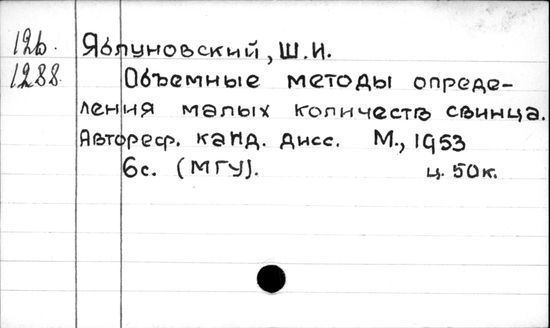 126. Яблуновский, Ш.И.
1288 Объемные методы опреде-
ления малых количеств свинца.
Автореф. канд. дисс. М., 1953
6с. (МГУ). ц. 50к.